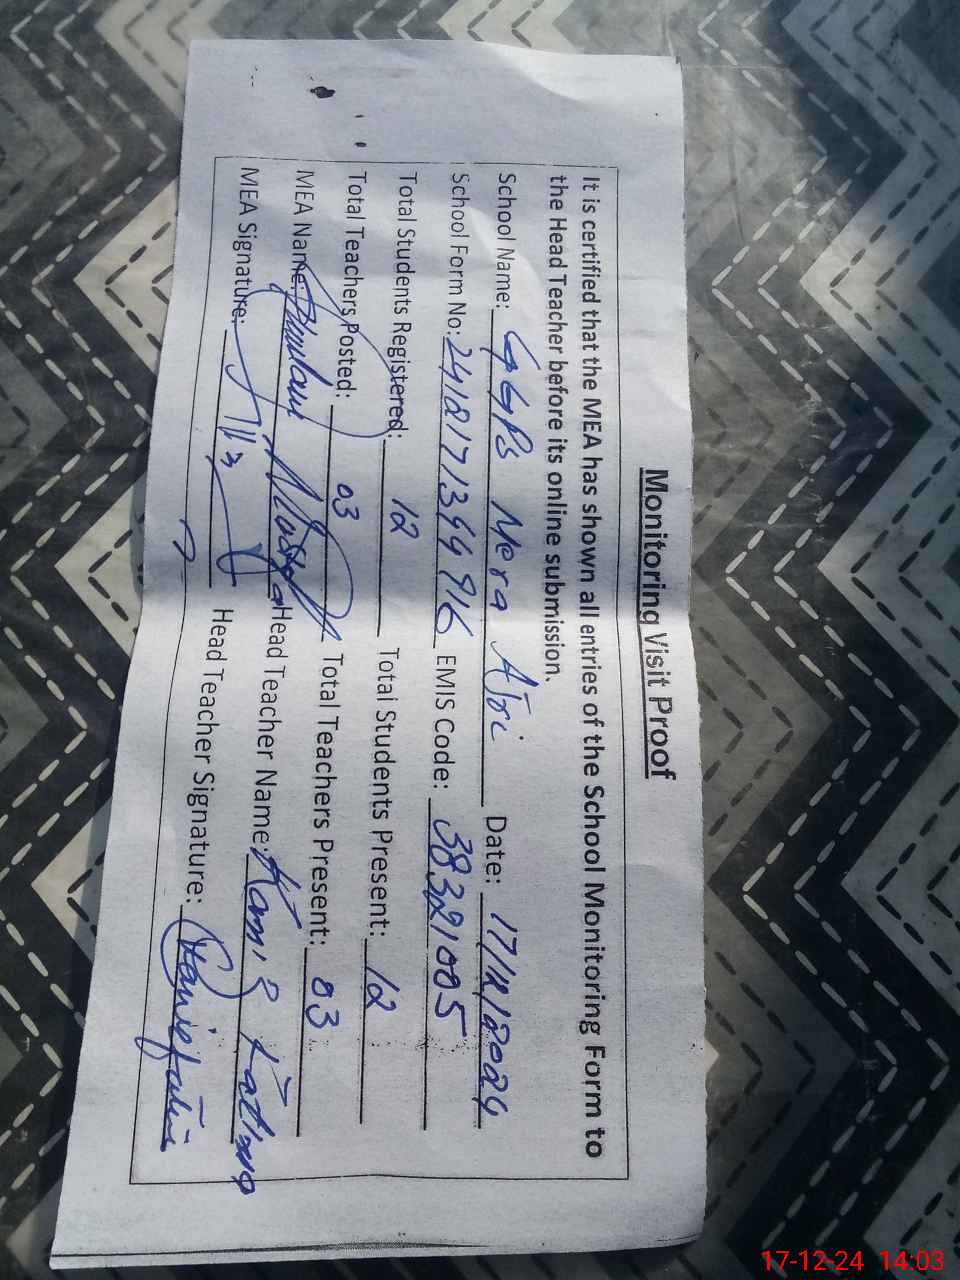 Monitoring Visit Proof
It is certified that the MEA has shown all entries of the School Monitoring Form to
the Head Teacher before its online submission.
School Name: GGPS Mera Date: 17/12/2024
School Form No: EMIS Code: 38321005
Total Students Registered: 12 Total Students Present: 12
Total Teachers Posted: 03 Total Teachers Present: 03
MEA Name: Ghulam Head Teacher Name: Kaniz Fatima
MEA Signature: Head Teacher Signature:
17-12-24 14:03